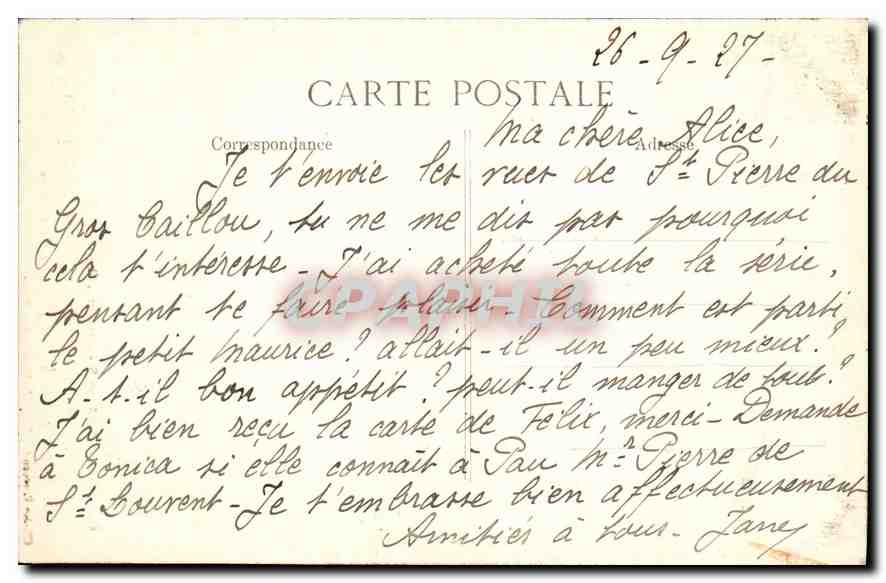 26-9-27-
CARTE POSTALE
Correspondance
Adresse
Ma chère Alice,
Je t'envoie les vues de St Pierre du
Gros Caillou, tu ne me dis pas pourquoi
cela t'intéresse - J'ai acheté toute la série,
pensant te faire plaisir - Comment est parti
le petit Maurice ? allait-il un peu mieux ?
A-t-il bon appétit ? peut-il manger de tout ?
J'ai bien reçu la carte de Félix, merci - Demande
à Tonica si elle connaît à Pau Mr Pierre de
St Louvent - Je t'embrasse bien affectueusement
Amitiés à tous - Jany
CPAPHIL